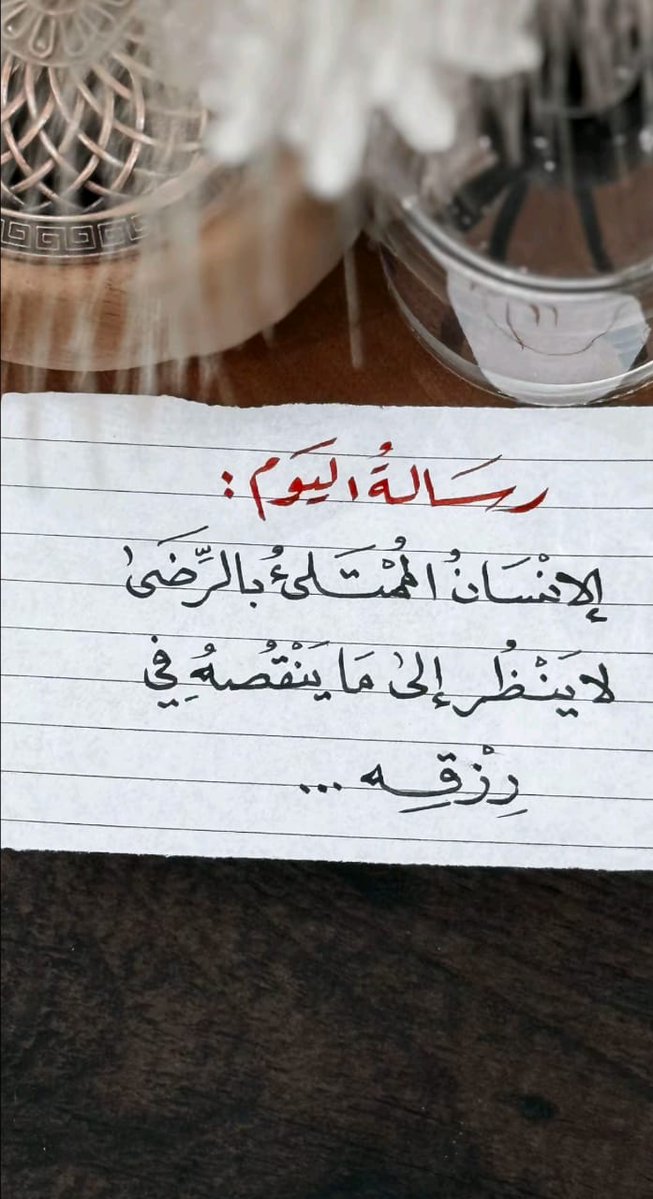 رسَالةُ اليَوم :
إلانْسَانُ المُمْتَلىءُ بالرِّضَىٰ
لا يَنْظُر إلىٰ مَا يَنْقُصهُ فِي
رِزْقِه ...